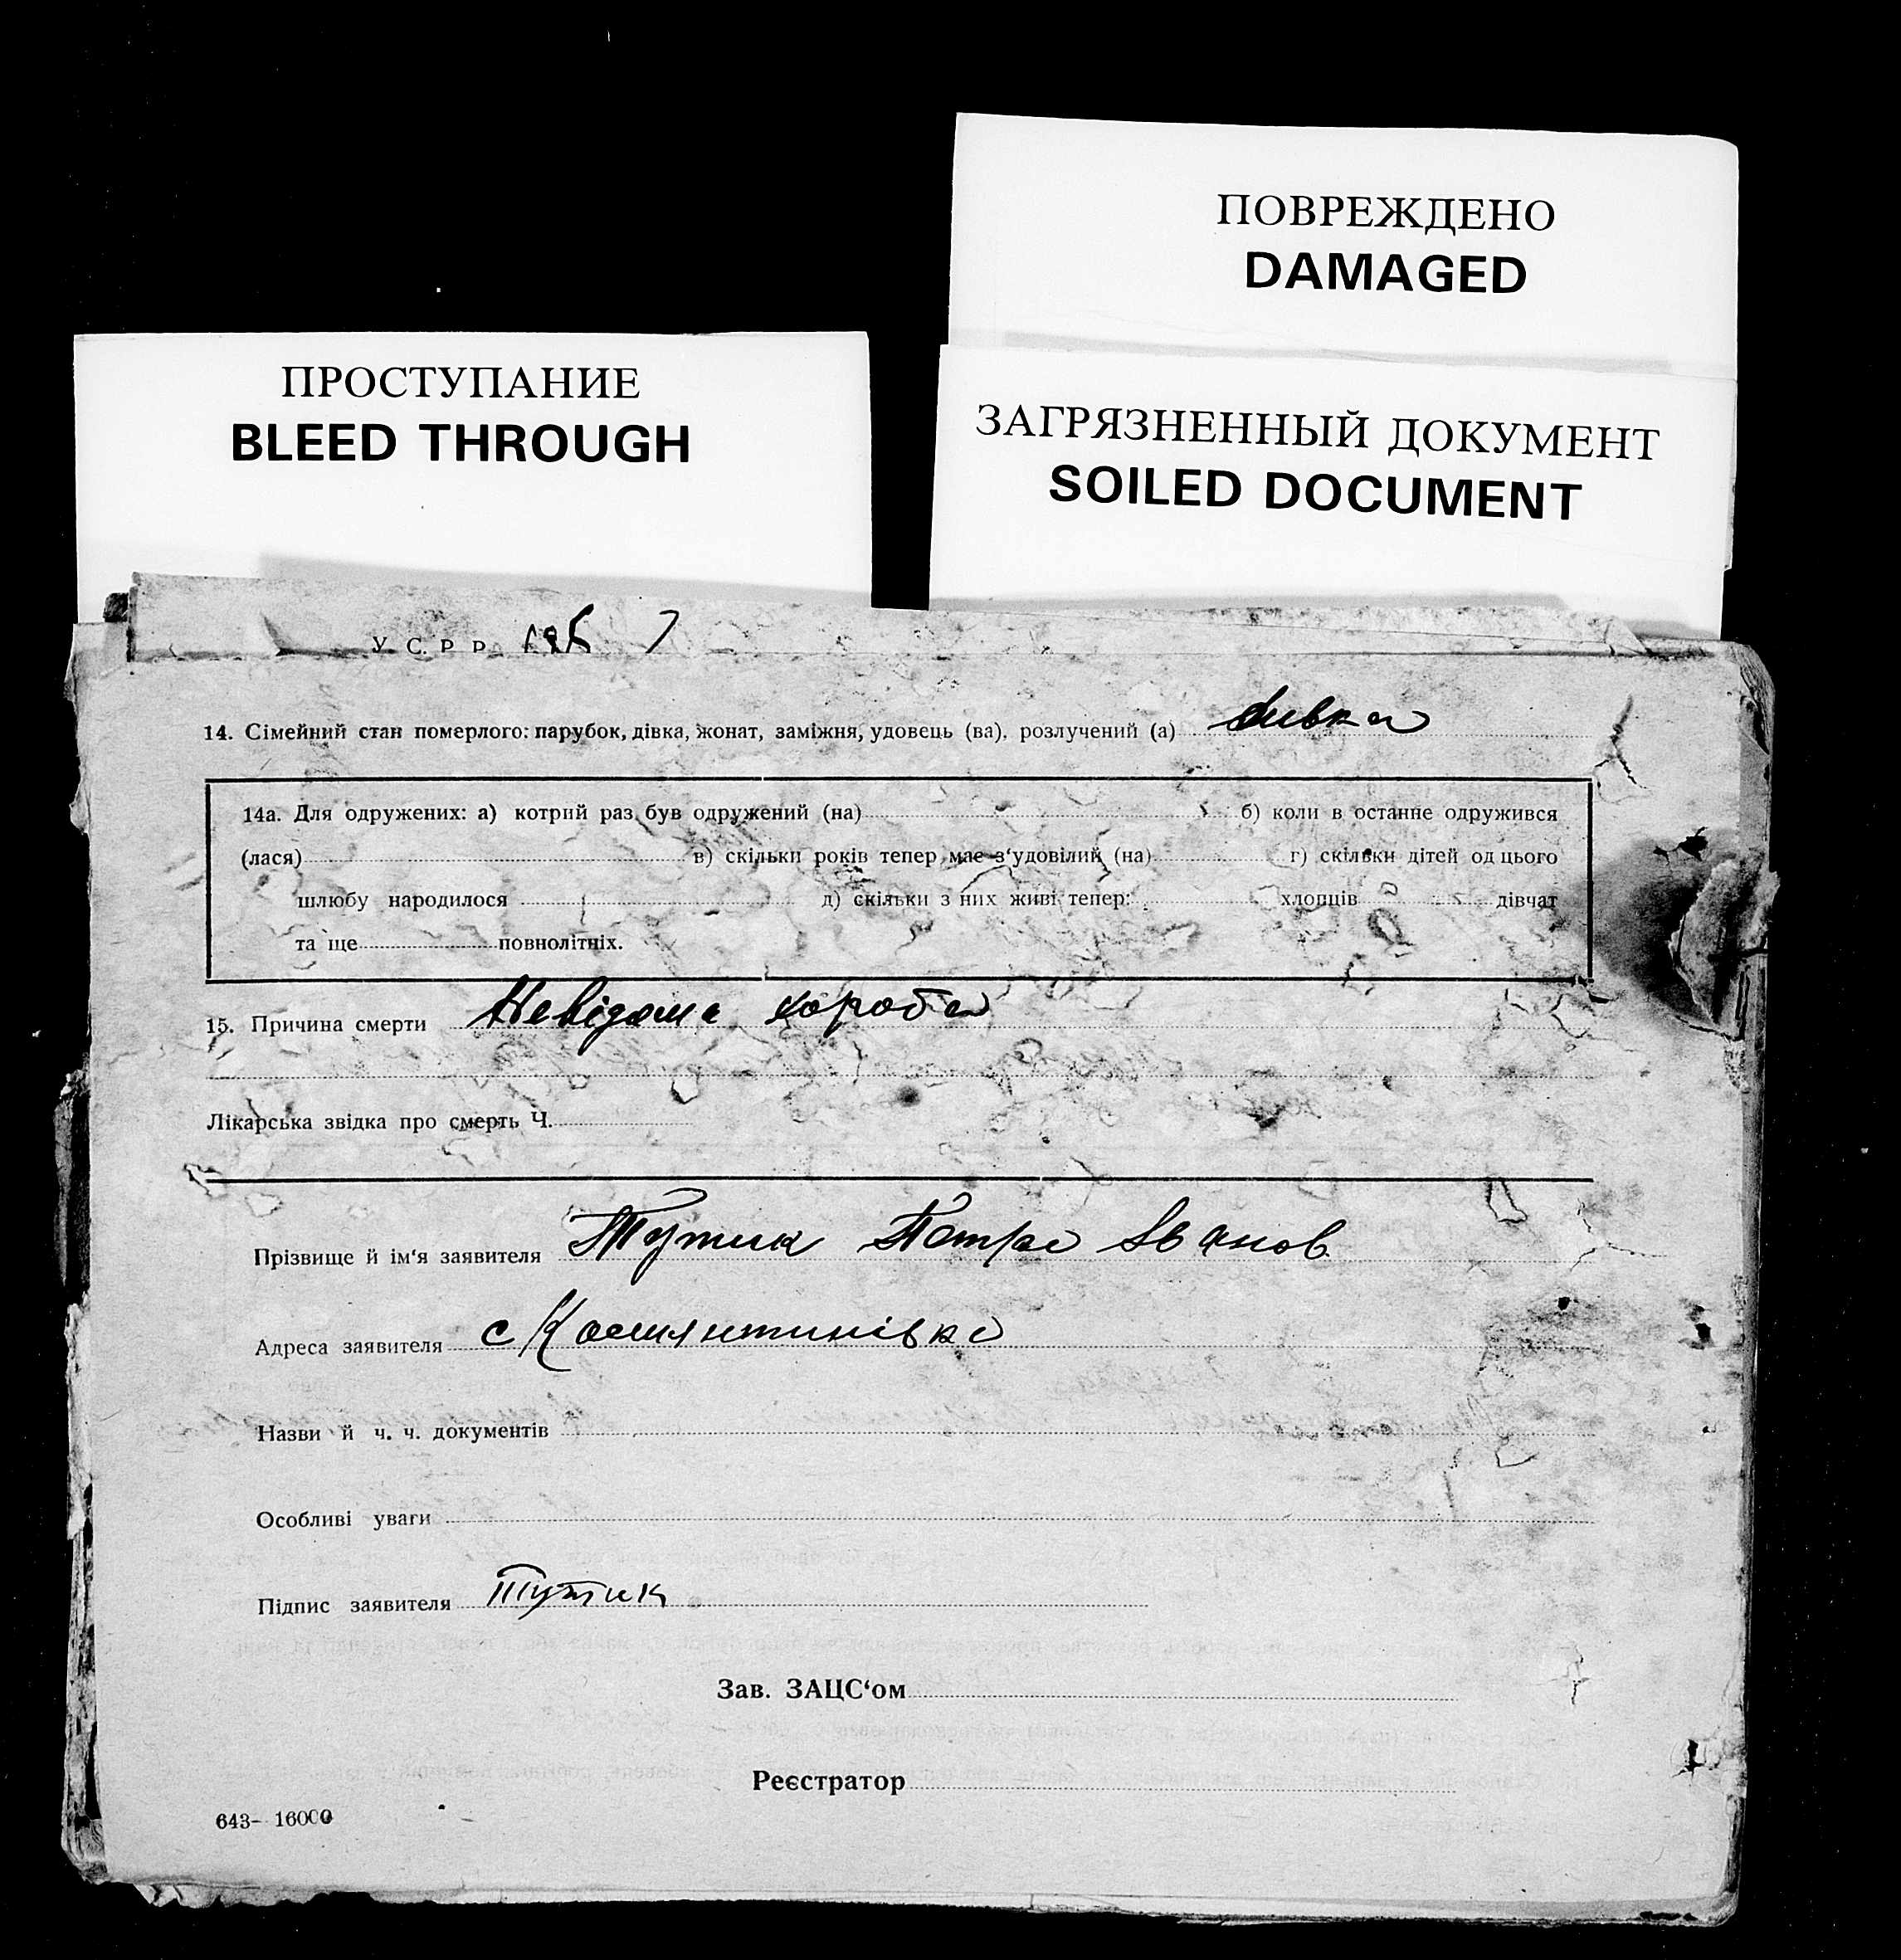 ПОВРЕЖДЕНО
DAMAGED
ПРОСТУПАНИЕ
BLEED THROUGH
ЗАГРЯЗНЕННЫЙ ДОКУМЕНТ
SOILED DOCUMENT
У. С. Р. Р.
14. Сімейний стан померлого: парубок, дівка, жонат, заміжня, удовець (ва), розлучений (а) дивка
14а. Для одружених: а) котрий раз був одружений (на) б) коли в останнє одружився
(лася) в) скільки років тепер має з'удовілий (на) г) скільки дітей од цього
шлюбу народилося д) скільки з них живі тепер: хлопців дівчат
та ще повнолітніх.
15. Причина смерти Невідома хороба
Лікарська звідка про смерть Ч.
Прізвище й ім'я заявителя Тутик Петро Іванов
Адреса заявителя с Костянтинівка
Назви й ч. ч. документів
Особливі уваги
Підпис заявителя Тутик
Зав. ЗАЦС'ом
Реєстратор
643- 16000